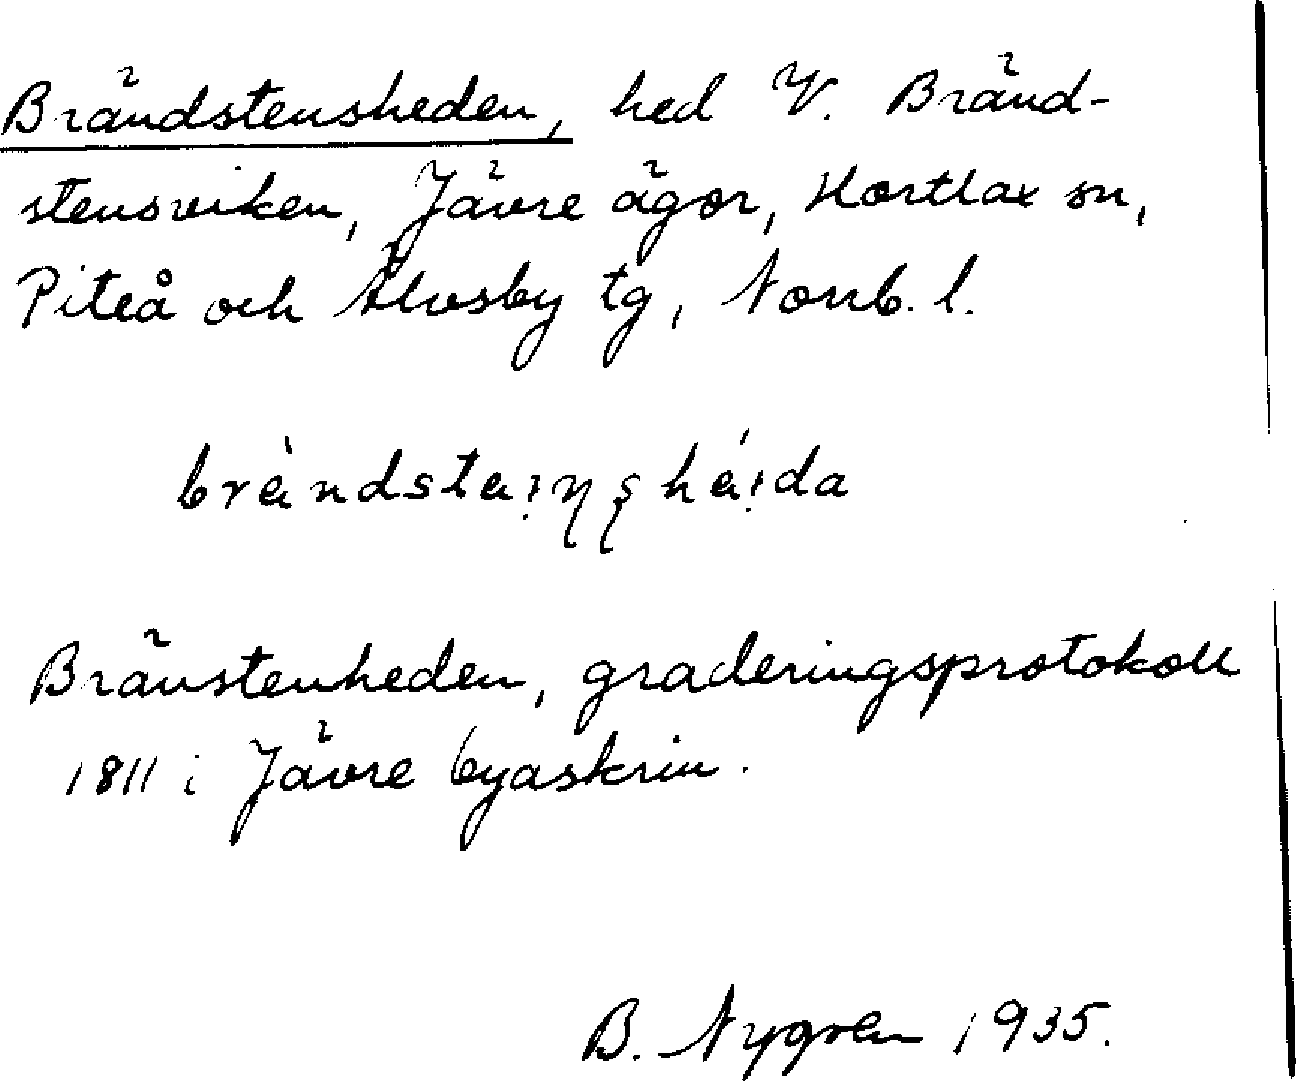 Brändstensheden, hed V. Bränd-
stensviken, Jävre ägor, Hortlax sn,
Piteå och Älvsby tg, Norrb. l.
brändstaiŋʂháida
Bränstenheden, graderingsprotokoll
1811 i Jävre byaskrin.
B. Nygren 1935.